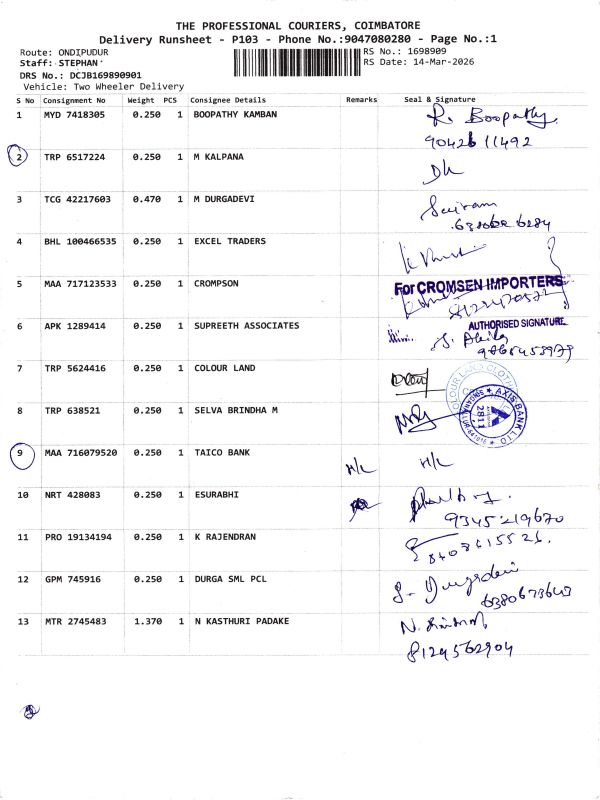 THE PROFESSIONAL COURIERS, COIMBATORE
Delivery Runsheet - P103 - Phone No.:9047080280 - Page No.:1
Route: ONDIPUDUR
RS No.: 1698909
Staff: STEPHAN
RS Date: 14-Mar-2026
DRS No.: DCJB169890901
Vehicle: Two Wheeler Delivery
S No Consignment No Weight PCS Consignee Details Remarks Seal & Signature
1 MYD 7418305 0.250 1 BOOPATHY KAMBAN R. Boopathy
90426 11492
2 TRP 6517224 0.250 1 M KALPANA
3 TCG 42217603 0.470 1 M DURGADEVI Sairam
4 BHL 100466535 0.250 1 EXCEL TRADERS
5 MAA 717123533 0.250 1 CROMPSON For CROMSEN IMPORTERS
6 APK 1289414 0.250 1 SUPREETH ASSOCIATES AUTHORISED SIGNATURE
7 TRP 5624416 0.250 1 COLOUR LAND
COLOUR LAND CLOTH
8 TRP 638521 0.250 1 SELVA BRINDHA M
AXIS BANK LTD
2811
9 MAA 716079520 0.250 1 TAICO BANK H/L H/L
10 NRT 428083 0.250 1 ESURABHI
9345219670
11 PRO 19134194 0.250 1 K RAJENDRAN
12 GPM 745916 0.250 1 DURGA SML PCL S. Durgadevi
6380673643
13 MTR 2745483 1.370 1 N KASTHURI PADAKE
8124562904